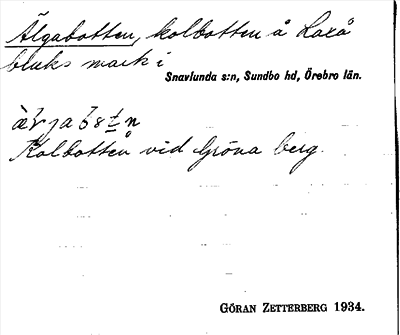 Älgabotten, kolbotten å Laxå
bruks mark i
Snavlunda s:n, Sundbo hd, Örebro län.
Kolbotten vid Gröna berg.
GÖRAN ZETTERBERG 1934.